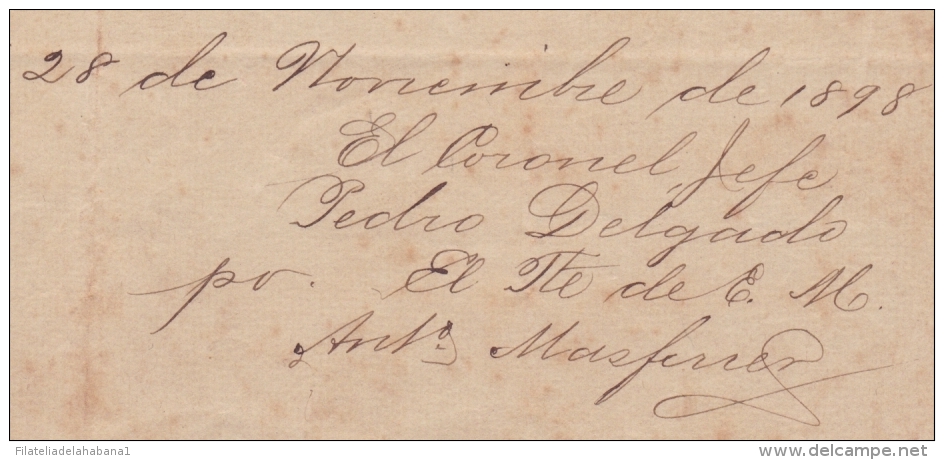 28 de Noviembre de 1898
El Coronel Jefe
Pedro Delgado
po. El Tte de E. M.
Anto. Masferrer
Filateliadelahabana1
delcampe.net